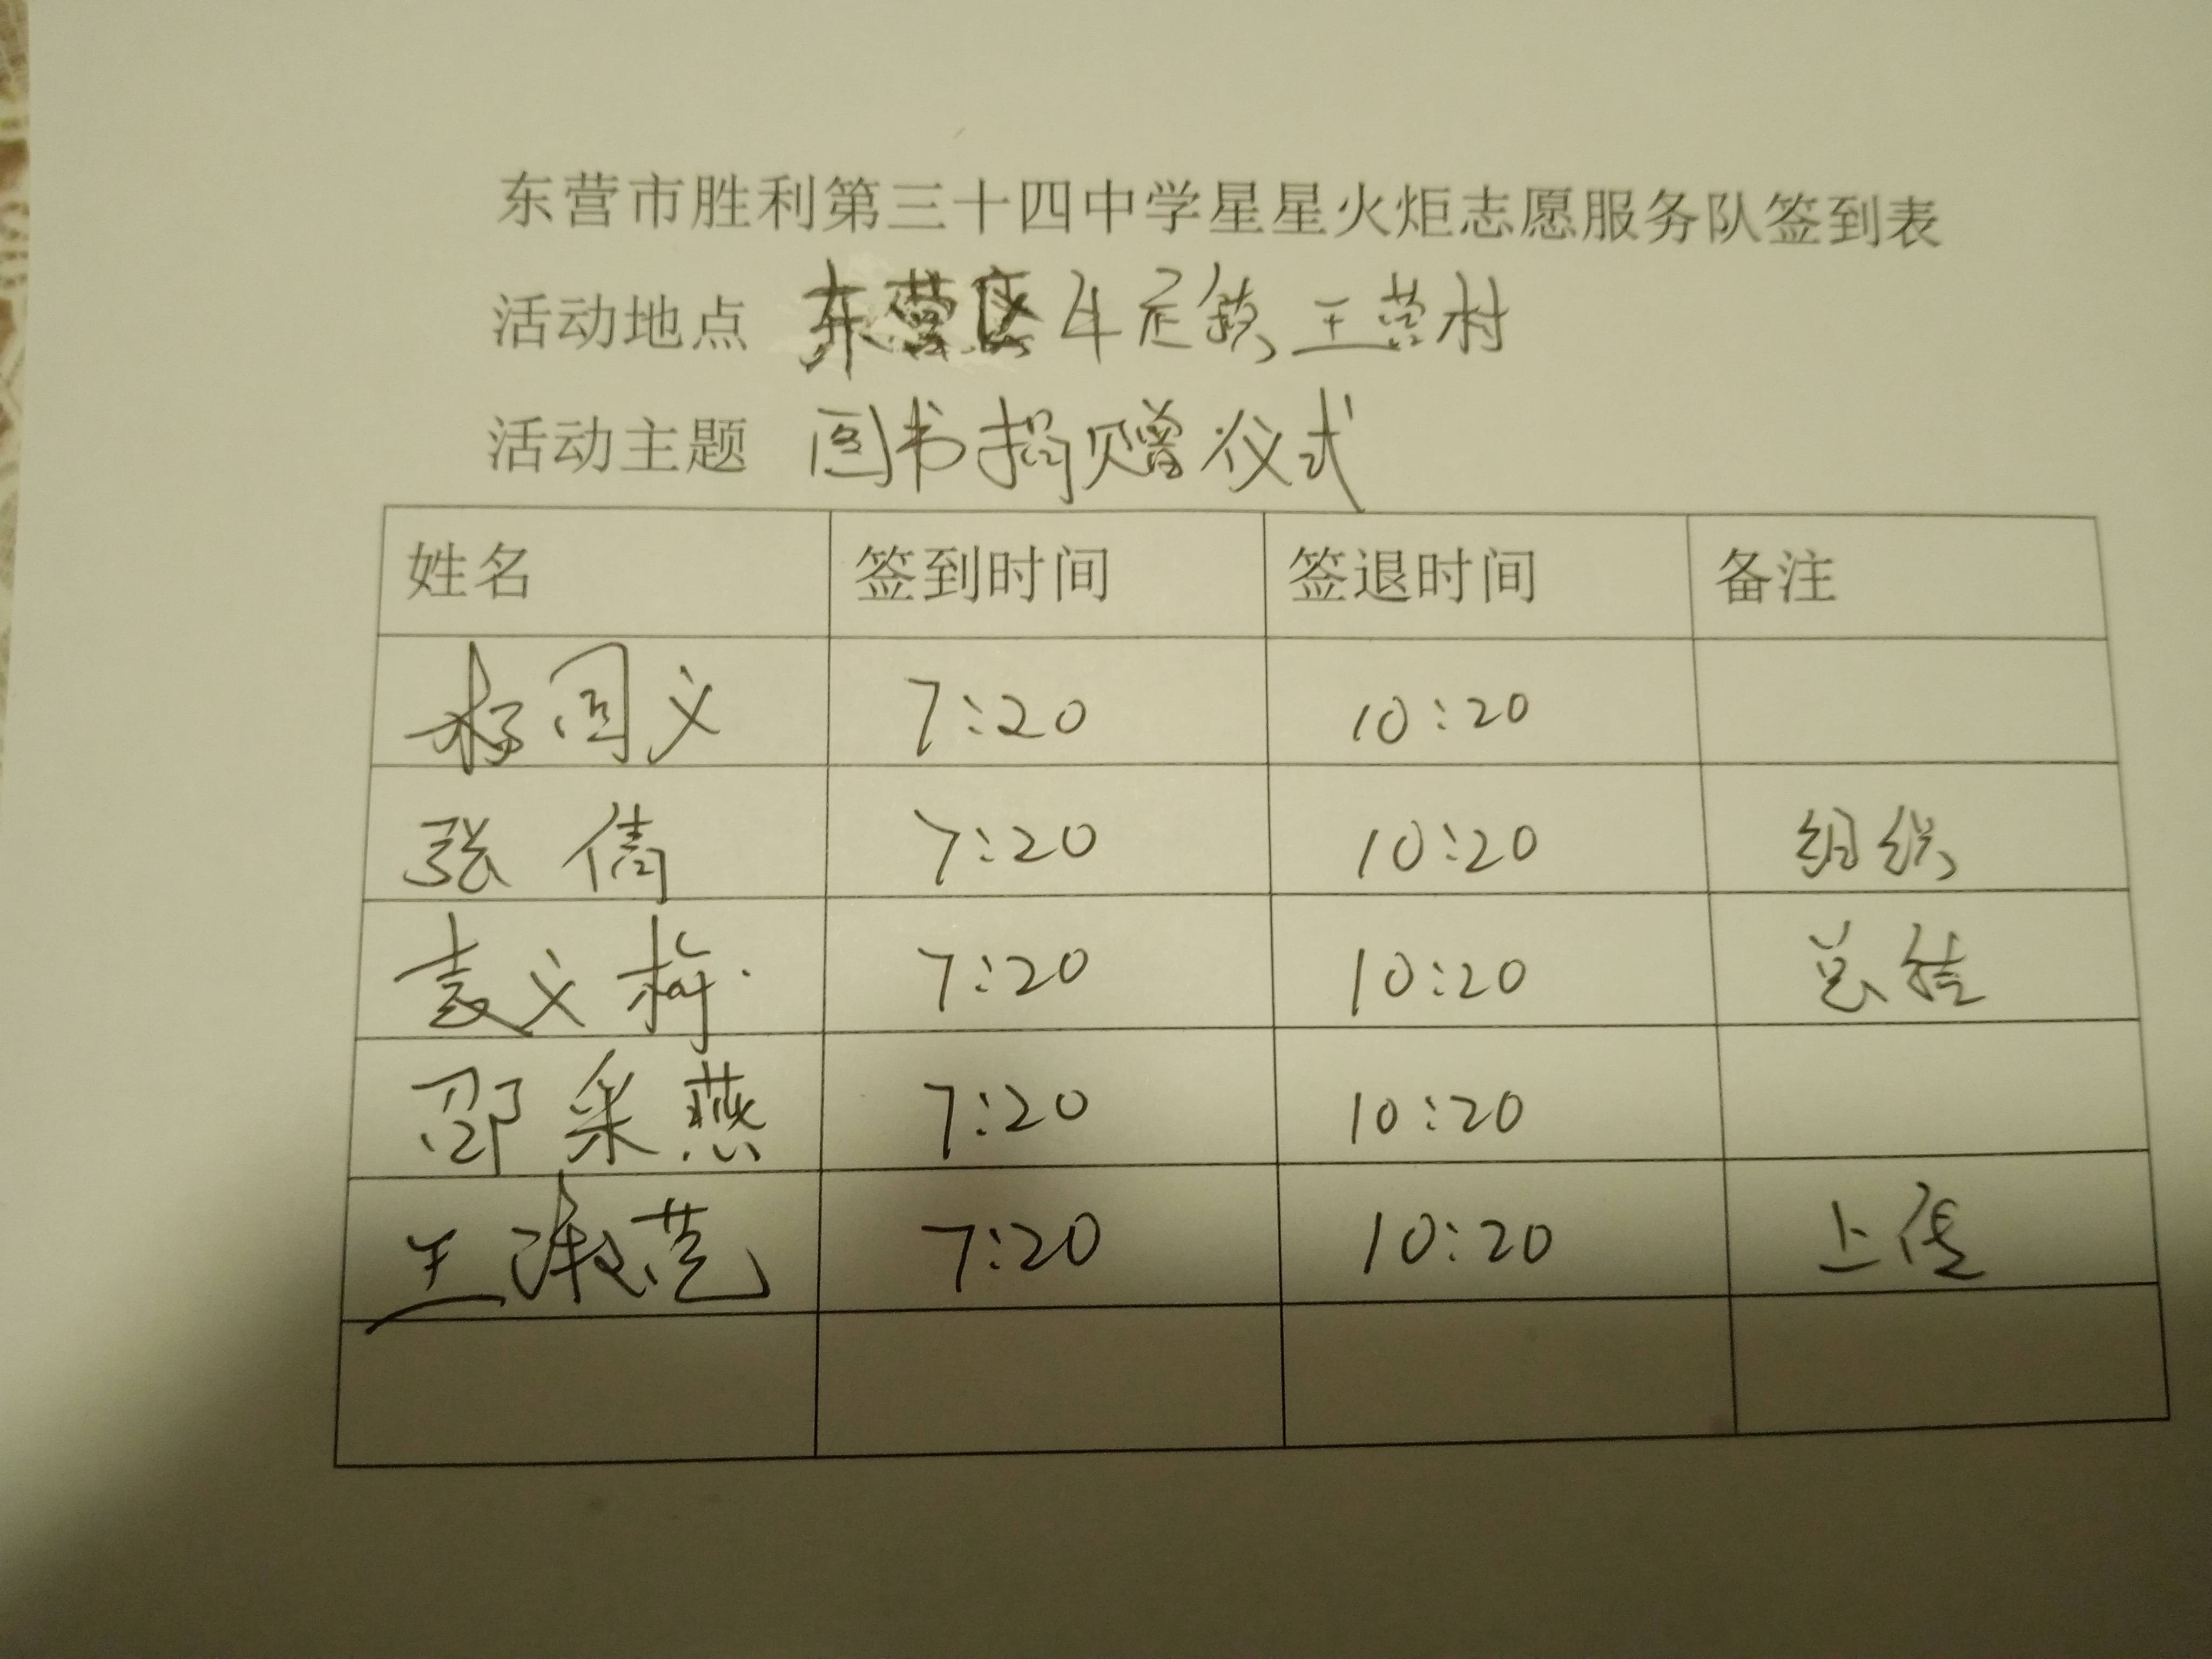 东营市胜利第三十四中学星星火炬志愿服务队签到表
活动地点 东营区牛庄镇王营村
活动主题 图书捐赠仪式
姓名 签到时间 签退时间 备注
杨国义 7:20 10:20
张倩 7:20 10:20 组织
袁义梅 7:20 10:20 总结
邵采燕 7:20 10:20
王淑芝 7:20 10:20 上传